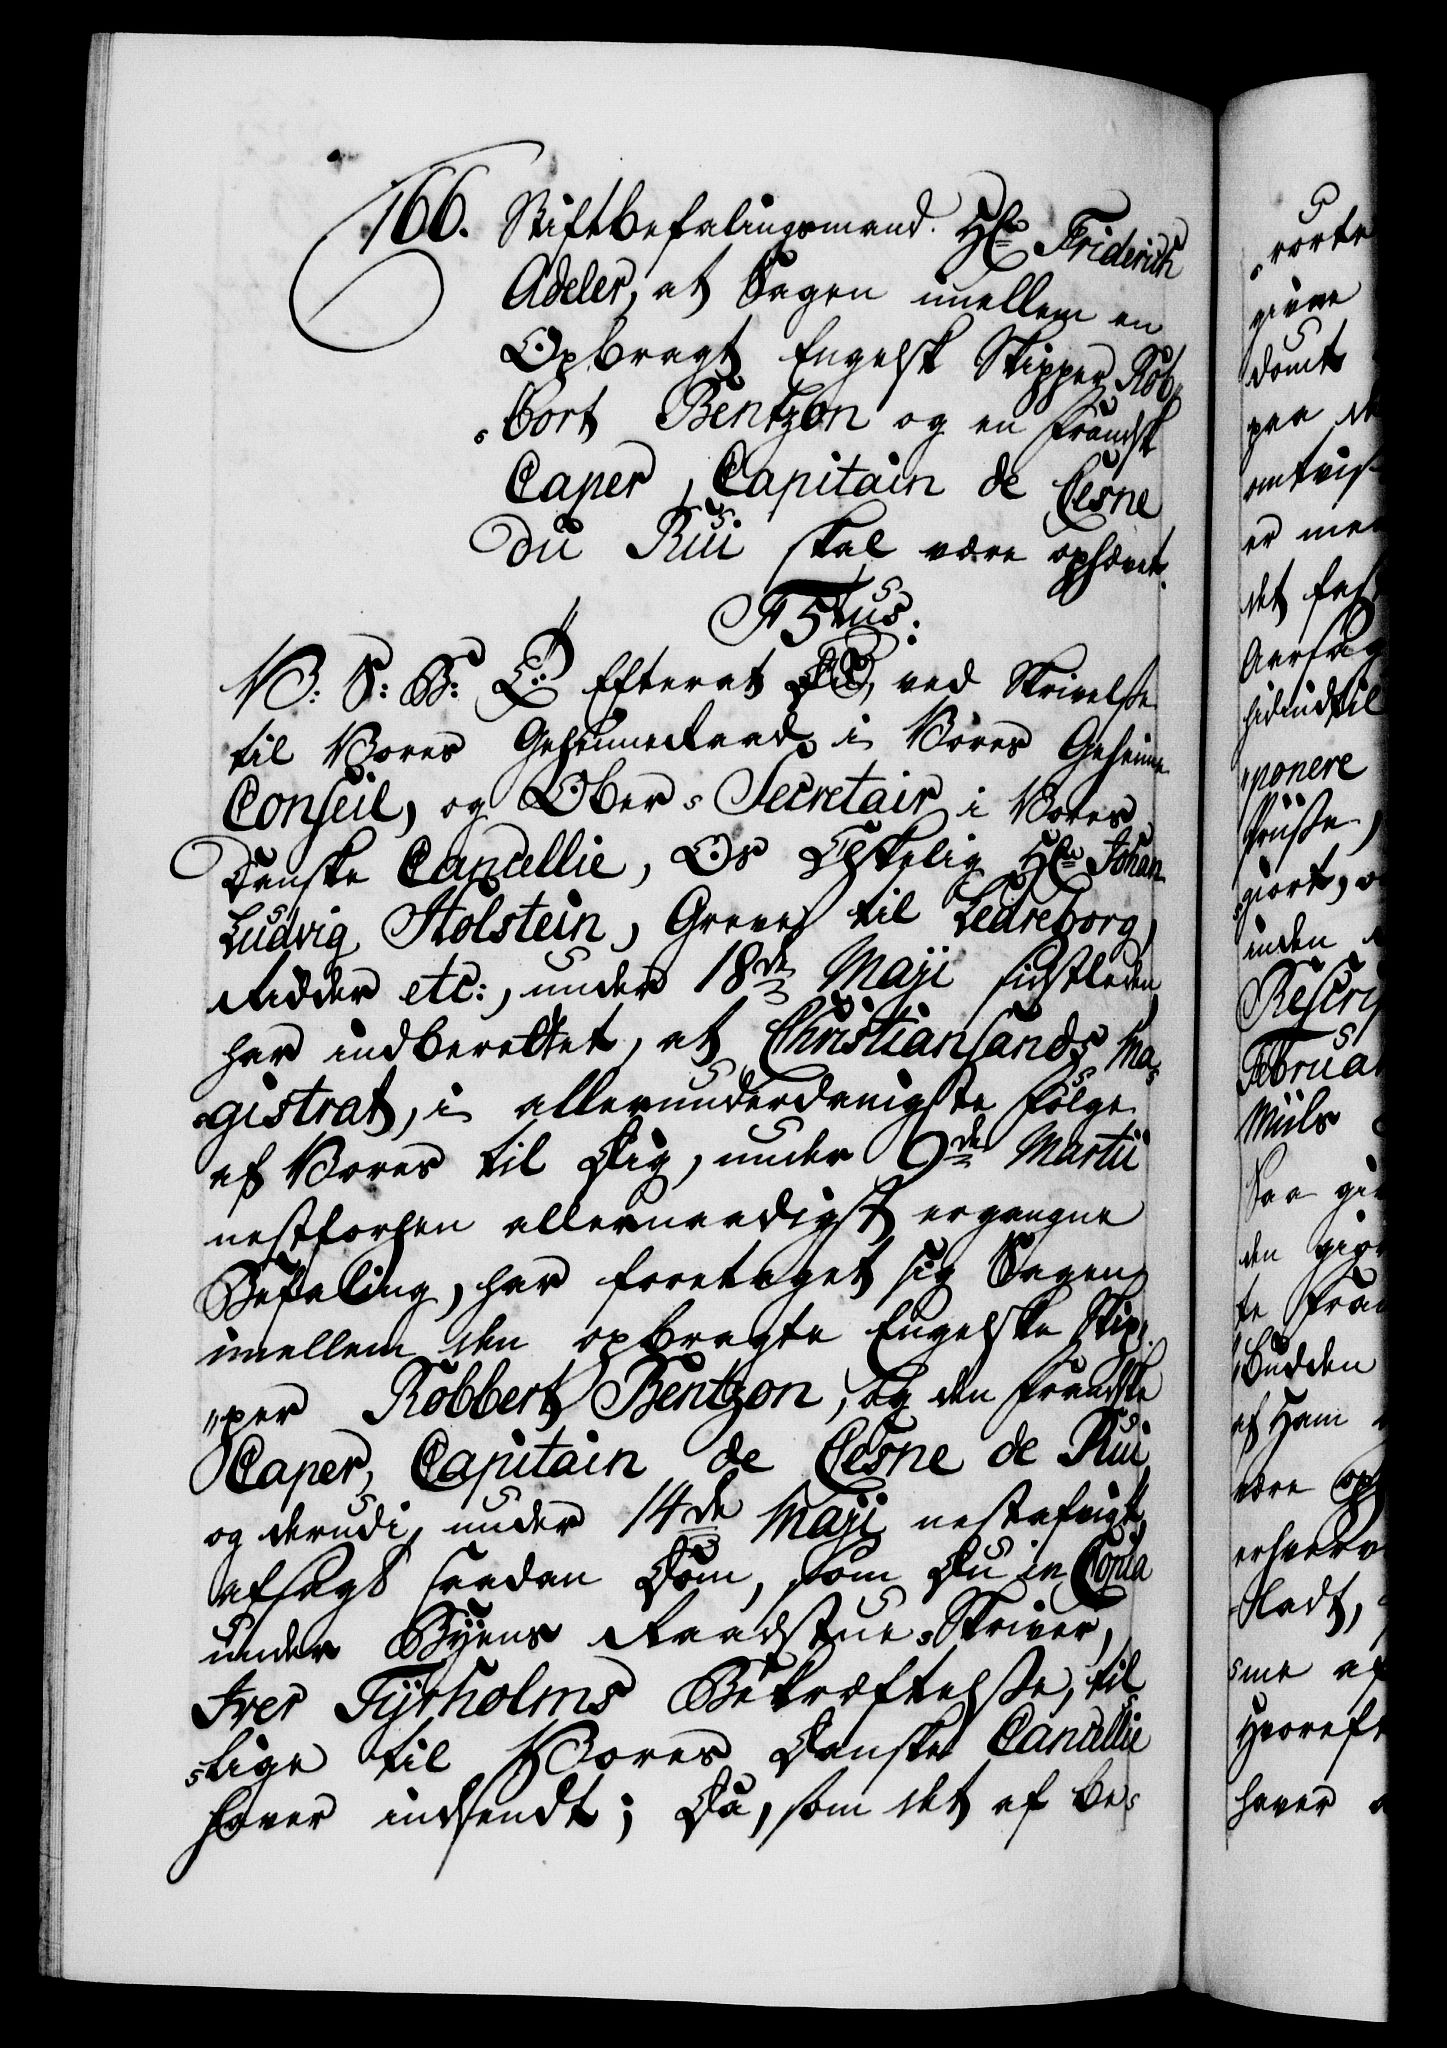 166. Stiftbefalingsmand Hr Friderich
Adeler, at Sagen imellem en
Opbragt Engelsk Skipper Rob„
„bert Bentzon og en Frandsk
Caper, Capitain de Cesne
du Rui skal være ophævet.
F 5tus:
V: S: G: T: Efterat Du, ved Skrivelse
til Vores Geheimeraad i Vores Geheime
Conseil, og Ober-Secretair i Vores
Danske Cancellie, Os Elskelig Hr Johan
Ludvig Holstein, Greve til Ledreborg,
Ridder etc:, under 18de Maji sidstleden
har indberettet, at Christiansands Ma-
gistrat, i allerunderdanigste Følge
af Vores til Dig, under 9de Martii
nestforhen allernaadigst ergangne
Befaling, har foretaget sig Sagen
imellem den opbragte Engelske Skip„
„per Robbert Bentzon, og den Frandske
Caper, Capitain de Cesne de Rui
og derudi, under 14de Maji nestafvigt,
afsagt saadan Dom, som Du in Copia
under Byens Raadstue-Skriver,
Iver Tyrholms Bekræftelse, til-
-lige til Vores Danske Cancellie
haver indsendt; Da, som det af be-
rorte
givne
domt
paa
omtvis
er
det
hidindtil
„ponere
Prisse,
giort,
inden
Rescri
Februar
Miils
Saa
den
te Fra
„budden
af Ham
være op
erhverv
-ladt,
-me af
Hvoreft
haver